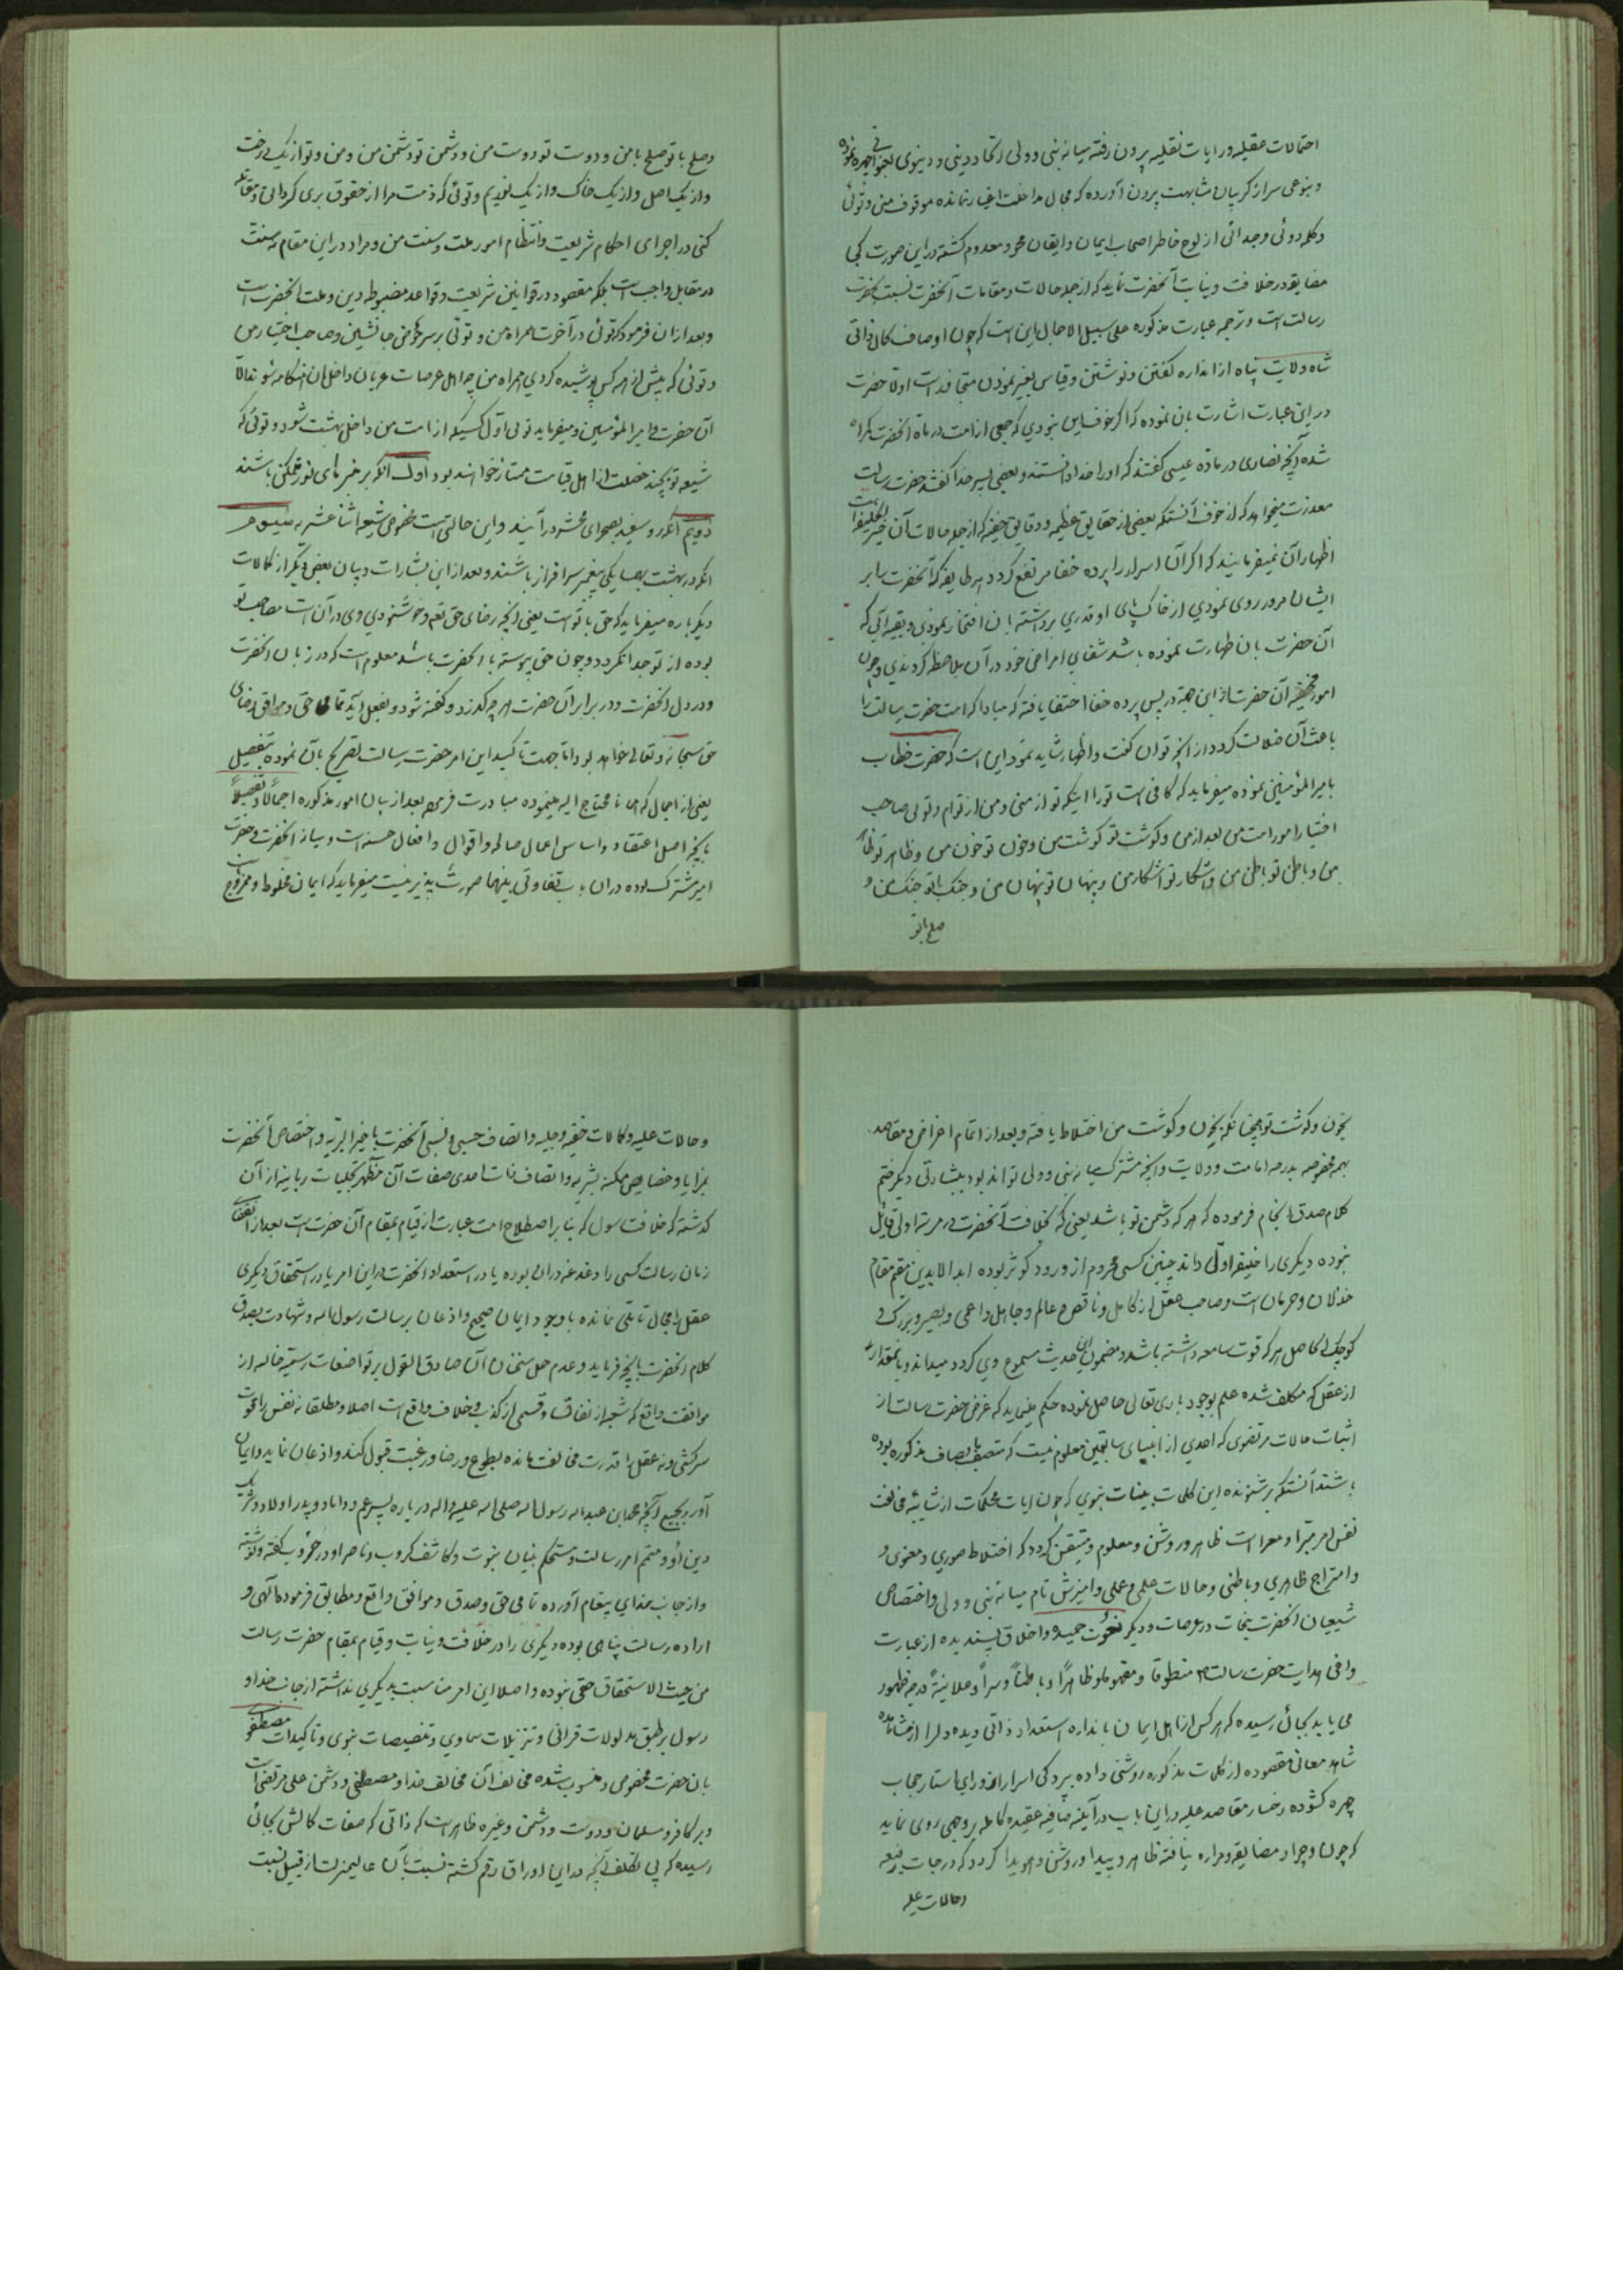 احتمالات عقلیه و رایات نقلیه بیرون رفته میانه نبی و ولی اتحاد دینی و دنیوی بنحوی چهره نموده
و بنوعی سر از گریبان مشابهت بیرون آورده که مجال مداخلت اغیار نمانده موقوف منی و توئی
و کلمه دوئی و جدائی از لوح خاطر اصحاب ایمان و ایقان محو و معدوم کشته در این صورت کجا
مضایقه در خلافت و نیابت آنحضرت نماید که از جمله حالات و مقامات آنحضرت نسبت بحضرت
رسالت است و ترجمه عبارت مذکوره علی سبیل الاجمال این است که چون اوصاف کمال ذاتی
شاه ولایت پناه از اندازه کفتن و نوشتن و قیاس بغیر نمودن متجاوز است اولا حضرت
در این عبارت اشارت بان نموده که اکر خوف این نبودی که جمعی از امت در ماده آنحضرت کمراه
شده آنچه نصاری در ماده عیسی کفتند که او را خدا دانستند و بعضی پسر خدا کفتند حضرت رسالت
معذرت میخواهد که از خوف آنستکه بعضی از حقایق عظیمه و دقایق خفیه که از جمله حالات آن خیر الخلیفه است
اظهار آن نمیفرمایند که اکر آن اسرار را پرده خفا مرتفع کردد بهر طایفه که آنحضرت را بر
ایشان مرور روی نمودی از خاک پای او قدری برداشته بان افتخار نمودی و بقیه آبی که
آن حضرت بان طهارت نموده باشد شفای امراض خود در آن ملاحظه کردندی و چون
امور مخفیه آن حضرت از این همه در پس پرده خفا اختفا یافته که مبادا که امت حضرت رسالت را
باعث آن ضلالت کردد از آنچه توان کفت و اظهار شاید نمود این است که حضرت خطاب
بامیرالمؤمنین نموده میفرماید که کافی است تو را اینکه تو از منی و من از توام و توئی صاحب
اختیار امور امت من بعد از من و کوشت تو کوشت من و خون تو خون من و ظاهر تو ظاهر
من و باطن تو باطن من و آشکار تو آشکار من و پنهان تو پنهان من و جنک با تو جنک من و
صلح با تو
وصلح با تو صلح با من و دوست تو دوست من و دشمن تو دشمن من و من و تو از یک درخت
و از یک اصل و از یک خاک و از یک نوریم و توئی که ذمت مرا از حقوق بری کردانی و مقاتله
کنی در اجرای احکام شریعت و انتظام امور ملت و سنت من و مراد در این مقام نه سنت
در مقابل واجب است بلکه مقصود در قوانین شریعت و قواعد مضبوطه دین و ملت آنحضرت است
و بعد از ان فرمود که توئی در آخرت همراه من و توئی بر سر حوض جانشین و صاحب اختیار من
و توئی که پیش از همه کس پوشیده کردی همراه من چو اهل عرصات عریان داخل ان هنکامه شوند الا
آن حضرت و امیرالمؤمنین و میفرماید توئی اول کسیکه از امت من داخل بهشت شود و توئی که
شیعه تو بچند خصلت از اهل قیامت ممتاز خواهند بود اول آنکه بر منبرهای نور متمکن باشند
دویم آنکه رو سفید بصحرای محشر در آیند و این حالتی است مخصوص شیعه اثنا عشریه سیوم
آنکه در بهشت بهمسایکی پیغمبر سرافراز باشند و بعد از این بشارات و بیان بعضی دیگر از کمالات
دیگر باره میفرماید که حق با تو است یعنی آنچه رضای حق تعم و خوشنودی وی در آن است مصاحب تو
بوده از تو جدا نکردد و چون حق پیوسته با آنحضرت باشد معلوم است که در زبان آنحضرت
و در دل آنحضرت و در برابر آن حضرت هر چه کذرد و کفته شود و بفعل آید تمامی حق و موافق رضای
حق سبحانه و تعالی خواهد بود اما جهت تاکید این امر حضرت رسالت تصریح بآن نموده بتفصیل
یعنی از اجمال که اهل ما محتاج الیه مینموده مبادرت فرموده بعد از بیان امور مذکوره اجمالا و تفصیلا
بآنچه اصل اعتقاد و اساس اعمال صالحه و اقوال و افعال حسنه است و میانه آنحضرت و حضرت
امیر مشترک بوده در ان بی تفاوتی بینهما صورت پذیر نیست میفرماید که ایمان مخلوط و ممزوج است
بخون و کوشت تو همچنانکه بخون و کوشت من اختلاط یافته و بعد از اتمام اغراض و مقاصد
بهمه مخصوصه بدرجه امامت و ولایت و آنچه مشترک میانه نبی و ولی تواند بود ببشارتی دیگر ختم
کلام صدق انجام فرموده که هر که دشمن تو باشد یعنی که بخلافت آنحضرت در مرتبه اولی قایل
نبوده دیکری را خلیفه اول داند چنین کسی محروم از ورود کوثر بوده ابد الابدین مقیم مقام
خذلان و حرمان است و صاحب عقل از کامل و ناقص و عالم و جاهل و اعمی و بصیر و بزرک و
کوچک الحاصل هر که قوت سامعه داشته باشد و مضمون این حدیث مسموع وی کردد میداند و بانمقدار
از عقل که مکلف شده علم بوجود باری تعالی حاصل نموده حکم مینماید که غرض حضرت رسالت از
اثبات حالات مرتضوی که احدی از انبیای سابقین معلوم نیست که متصف باوصاف مذکوره بوده
باشند آنستکه بر شنونده این کلمات بینات نبوی که چون ایات محکمات از شایبه مخالفت
نفس امر مبرا و معرا است ظاهر و روشن و معلوم و متیقن کردد که اختلاط صوری و معنوی و
و امتزاج ظاهری و باطنی و حالات علمی و عملی و امیزش تام میانه نبی و ولی و اختصاص
شیعیان آنحضرت بنجات در عرصات و دیگر نعوت حمیده و اخلاق پسندیده از عبارت
وافی هدایت حضرت رسالت ص منطوقا و مفهوما و ظاهرا و باطنا و سرا و علانیة درجه ظهور
می یابد بجائی رسیده که هر کس از اهل ایمان باندازه استعداد ذاتی دیده دل را از مشاهده
شاهد معانی مقصوده از کلمات مذکوره روشنی داده پردکی اسرار از ورای استار حجاب
چهره کشوده رخسار مقاصد علیه در این باب در آینه صافیه عقیده کامله بر وجهی روی نماید
که چون و چرا و مضایقه و مدارا نیافته ظاهر و پیدا و روشن و هویدا کردد که درجات رفیعه
و حالات علیه
و حالات علیه و کمالات خفیه و جلیه و اتصاف حسبی و نسبی آنحضرت با خیر البریه و اختصاص آنحضرت
بمزایا و خصایص ممکنه بشریه و اتصاف ذات احدی صفات آن مظهر تجلیات ربانیه از آن
کذشته که خلافت رسول که بنابر اصطلاح امت عبارت از قیام بمقام آن حضرت است بعد از انقضای
زمان رسالت کسی را دغدغه در ان بوده یا در استعداد آنحضرت در این امر یا در استحقاق دیکری
عقل را مجال تاملی نمانده باوجود ایمان صحیح و اذعان برسالت رسول الله و شهادت بصدق
کلام آنحضرت بآنچه فرماید و عدم حمل سخنان آن صادق القول بر تواضعات رسمیه خالیه از
موافقت واقع که شعبه از نفاق و قسمی از کذب و خلاف واقع است اصلا و مطلقا نه نفس را نخوت
سرکشی و نه عقل را قدرت مخالفت مانده بطوع و رضا و رغبت قبول کند و اذعان نماید و ایمان
آورد بجمیع آنچه محمد ابن عبدالله رسول الله صلی الله علیه و اله در باره پسر عم و داماد و پدر اولاد و شریک
دین او و متمم امر رسالت و مستحکم بنیان نبوت و کاشف کروب و ناصر او در حروب کفته و نوشته
و از جانب خدای پیغام آورده تمامی حق و صدق و موافق واقع و مطابق فرموده الهی و
اراده رسالت پناهی بوده دیکری را در خلافت و نیابت و قیام بمقام حضرت رسالت
من حیث الاستحقاق حقی نبوده و اصلا این امر مناسبت بدیکری نداشته از جانب خدا و
رسول بر طبق مدلولات قرانی و تنزیلات سماوی و تنصیصات نبوی و تاکیدات مصطفوی
بان حضرت مخصوص و منسوب شده مخالف آن مخالف خدا و مصطفی و دشمن علی مرتضی است
و بر کافر و مسلمان و دوست و دشمن و غیره ظاهر است که ذاتی که صفات کمالش بجائی
رسیده که بی تکلف آنچه در این اوراق رقم کشته نسبت بآن عالیمنزلت از قبیل نسبت